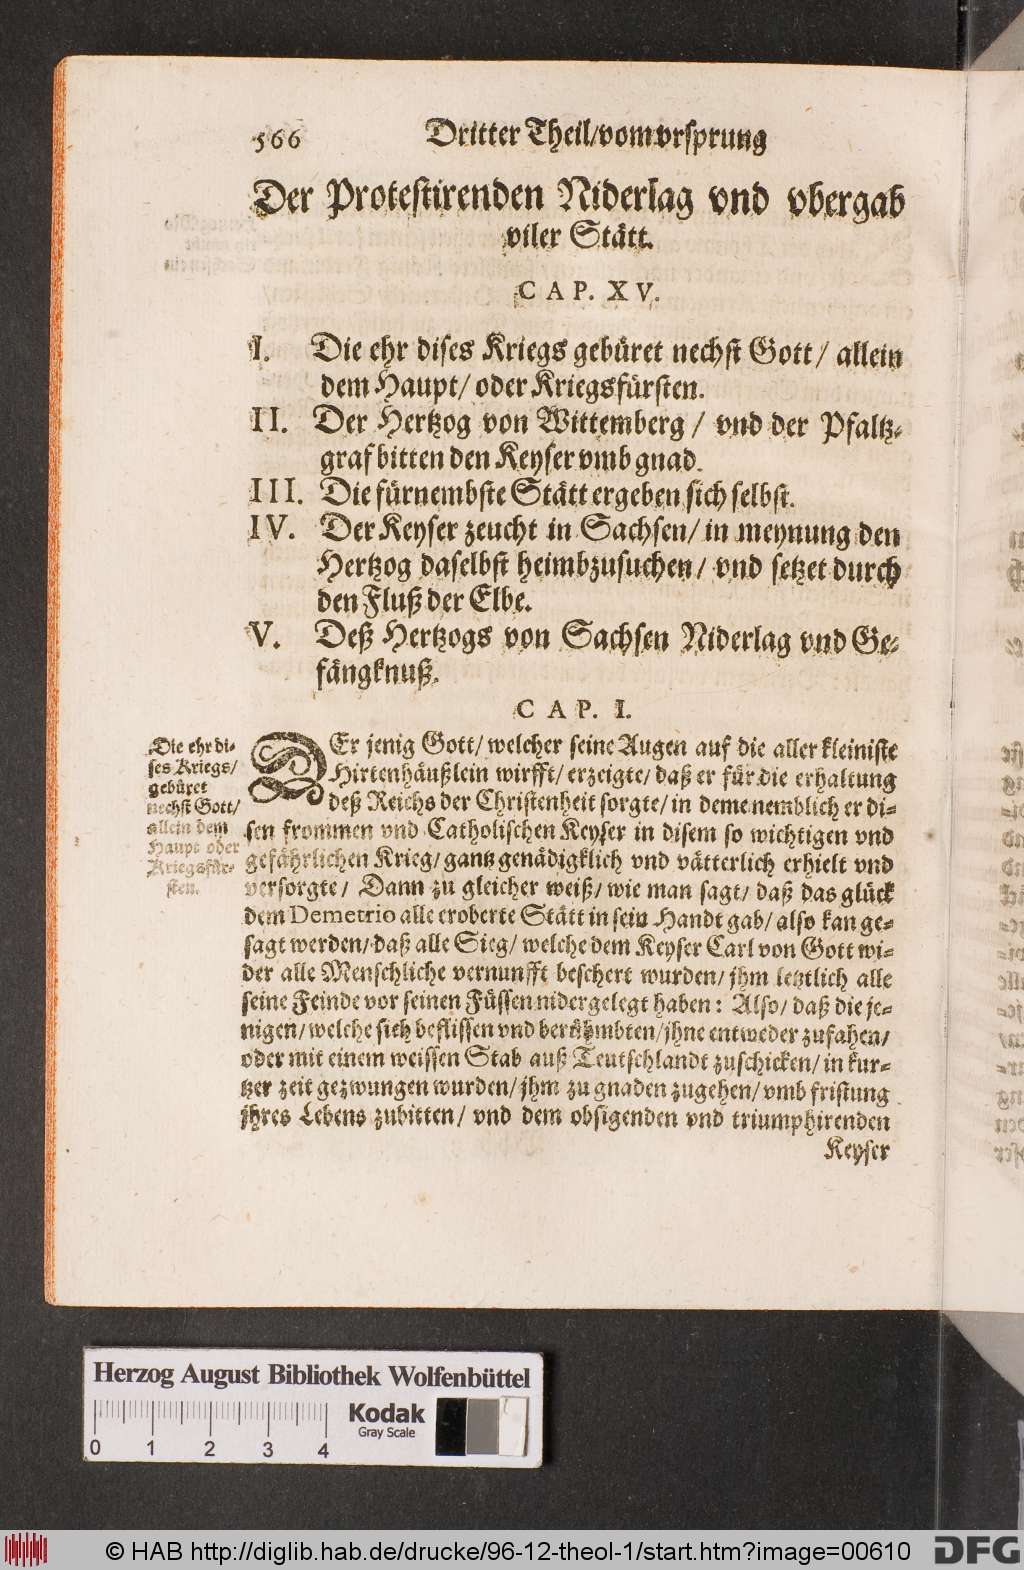 566 Dritter Theil/vom vrsprung
Der Protestirenden Niderlag vnd vbergab
viler Stätt.
CAP. XV.
I. Die ehr dises Kriegs gebüret nechst Gott/ allein
dem Haupt/ oder Kriegsfürsten.
II. Der Hertzog von Wittemberg / vnd der Pfaltz-
graf bitten den Keyser vmb gnad.
III. Die fürnembste Stätt ergeben sich selbst.
IV. Der Keyser zeucht in Sachsen/ in meynung den
Hertzog daselbst heimbzusuchen/ vnd setzet durch
den Fluß der Elbe.
V. Deß Hertzogs von Sachsen Niderlag vnd Ge-
fängknuß.
CAP. I.
Die ehr di-
ses Kriegs/
gebüret
nechst Gott/
allein dem
Haupt oder
Kriegsfür-
sten.
DEr jenig Gott/ welcher seine Augen auf die aller kleiniste
Hirtenhäußlein wirfft/ erzeigte/ daß er für die erhaltung
deß Reichs der Christenheit sorgte/ in deme nemblich er di-
sen frommen vnd Catholischen Keyser in disem so wichtigen vnd
gefährlichen Krieg/ gantz genädigklich vnd vätterlich erhielt vnd
versorgte/ Dann zu gleicher weiß/ wie man sagt/ daß das glück
dem Demetrio alle eroberte Stätt in sein Handt gab/ also kan ge-
sagt werden/ daß alle Sieg/ welche dem Keyser Carl von Gott wi-
der alle Menschliche vernunfft beschert wurden/ jhm letztlich alle
seine Feinde vor seinen Füssen nidergelegt haben: Also/ daß die je-
nigen/ welche sich beflissen vnd berühmbten/ jhne entweder zufahen/
oder mit einem weissen Stab auß Teutschlandt zuschicken/ in kur-
tzer zeit gezwungen wurden/ jhm zu gnaden zugehen/ vmb fristung
jhres Lebens zubitten/ vnd dem obsigenden vnd triumphirenden
Keyser
Herzog August Bibliothek Wolfenbüttel
Kodak
Gray Scale
0 1 2 3 4
© HAB http://diglib.hab.de/drucke/96-12-theol-1/start.htm?image=00610
DFG